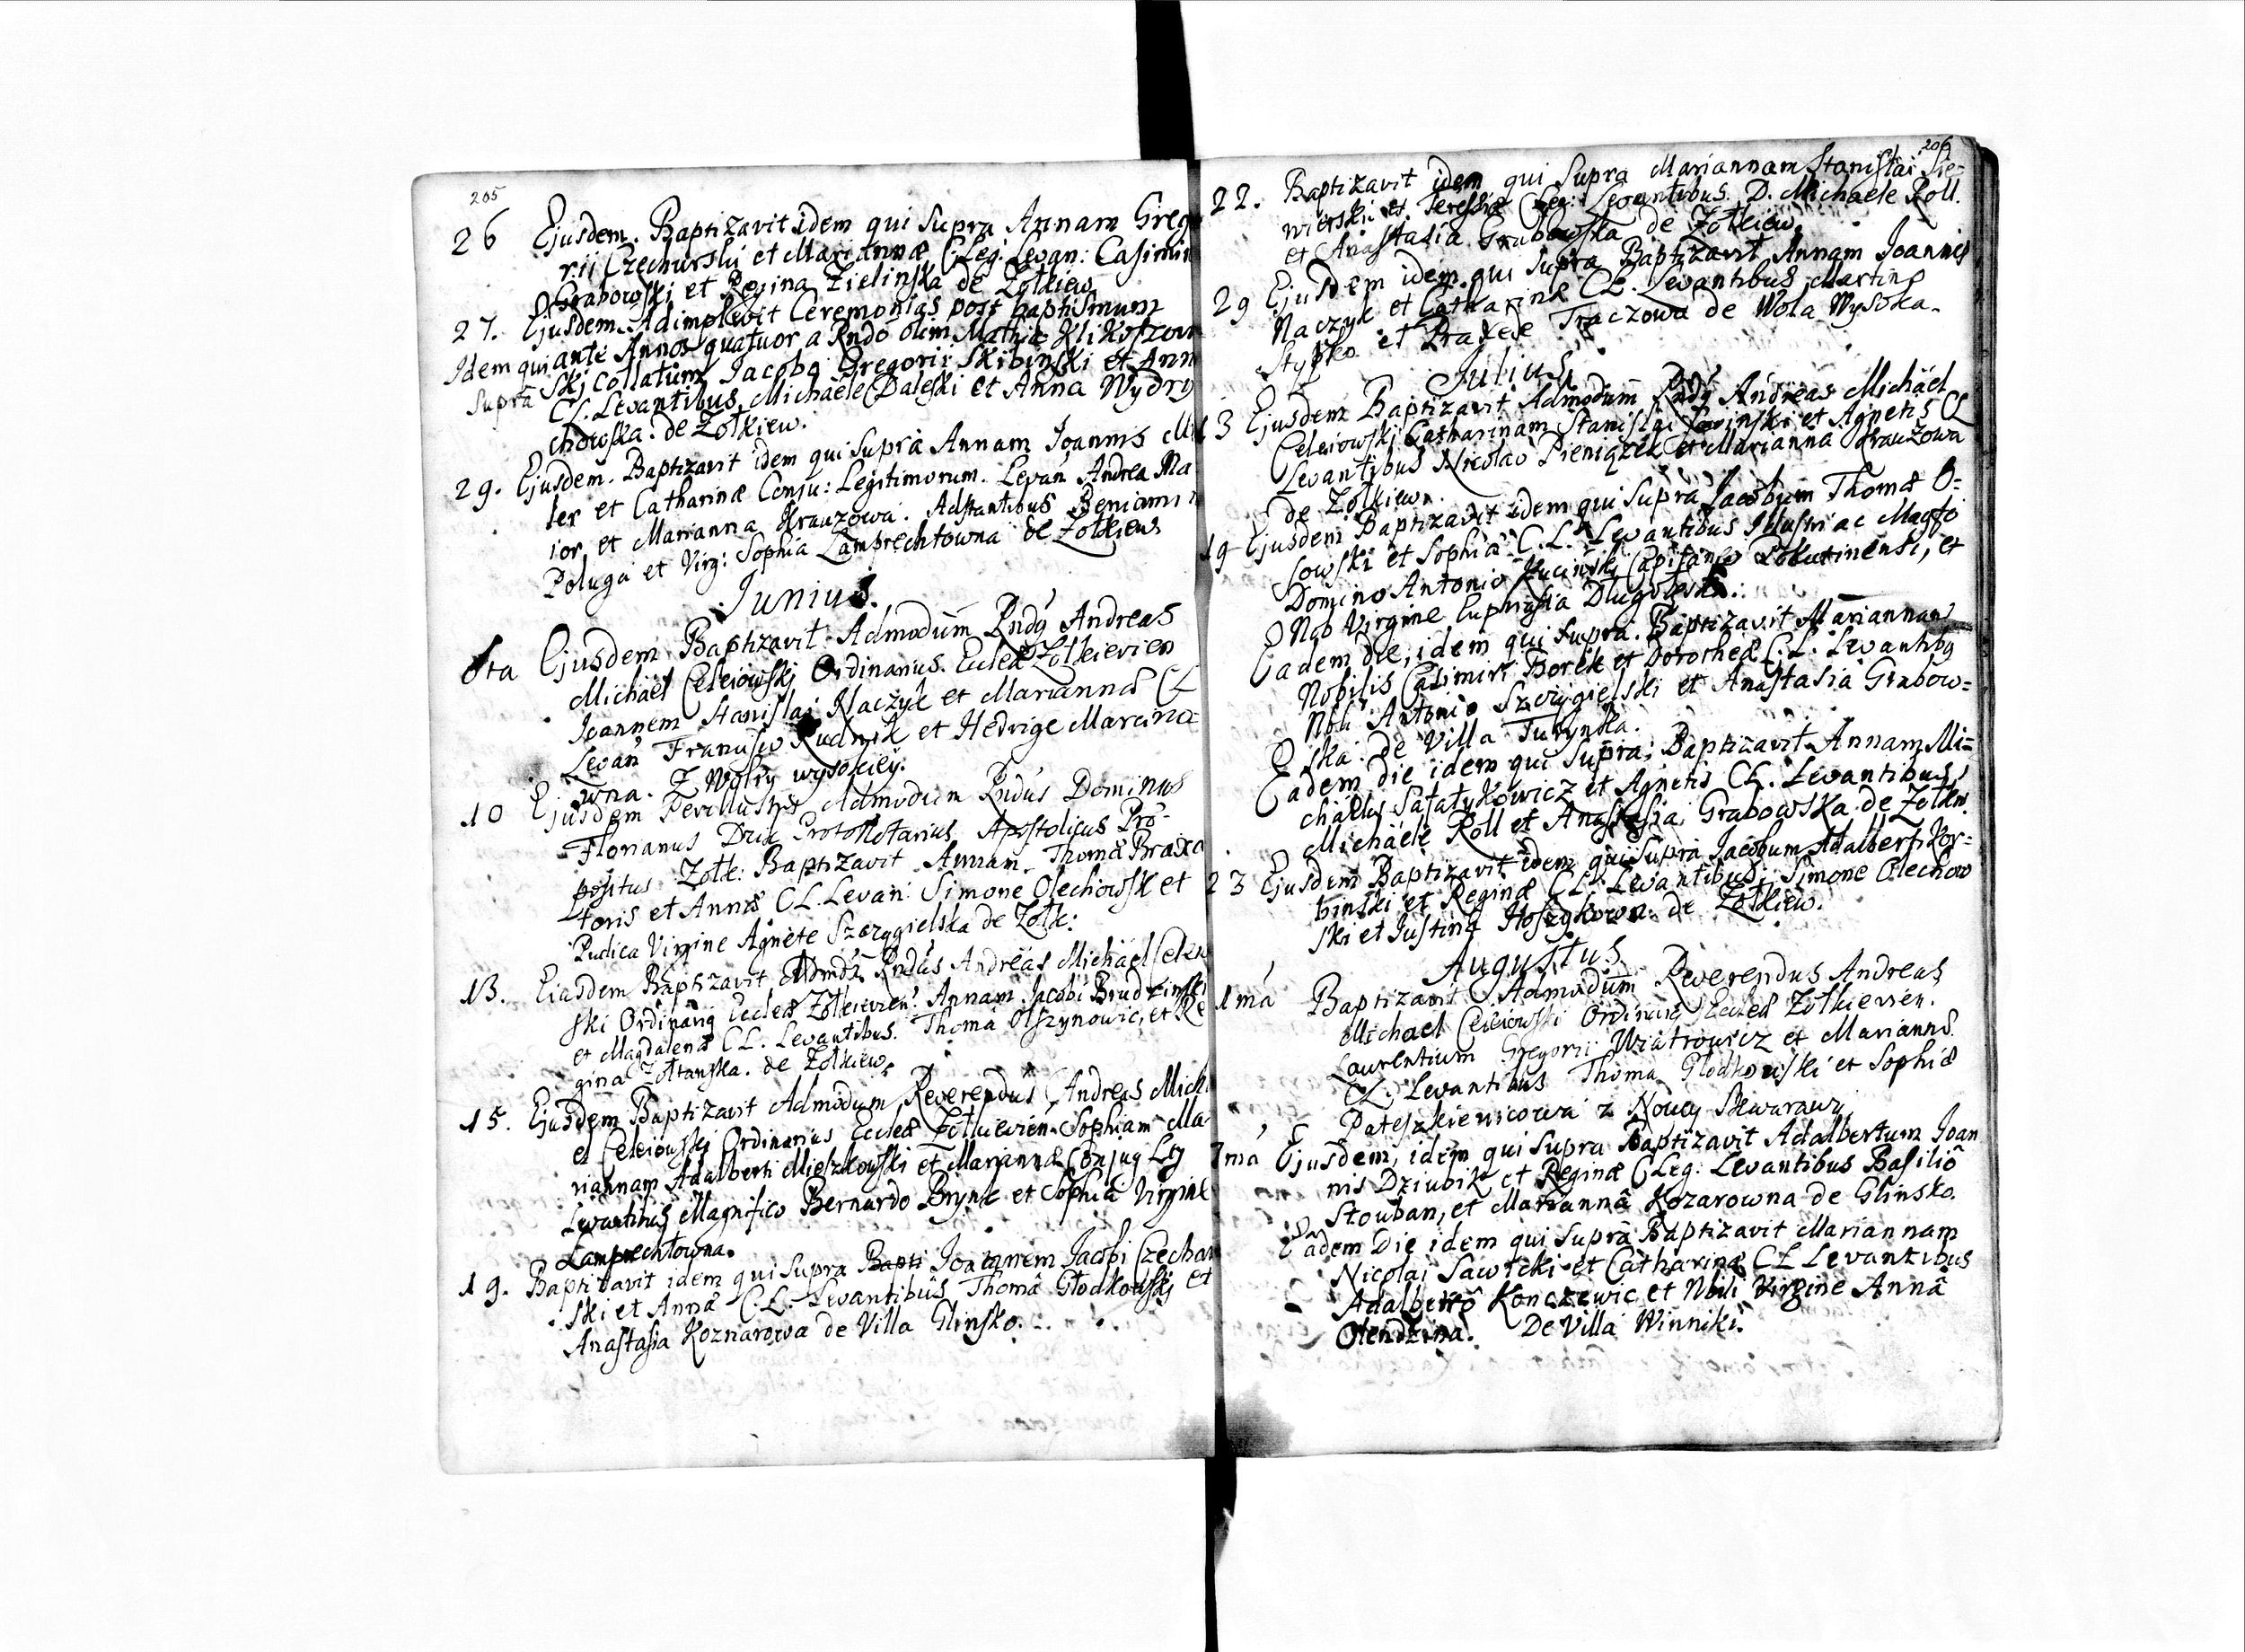 205
26 Ejusdem. Baptizavit idem qui Supra Annam Grego
rii Czechurski et Mariannæ C: Leg: Levan: Casimiro
Grabowski et Regina Zielinska de Zołkiew
27. Ejusdem. Adimplevit Ceremonias post baptismum
Idem qui ante Annos quatuor a Rndo olim Mathia Klikoszow
Supra skj Collatum Jacobo Gregorii Skibinski et Ann
CL. Levantibus Michaële Daleski et Anna Wydry
chowska. de Zołkiew.
29. Ejusdem. Baptizavit idem qui Supra Annam Joannis Mil
ler et Catharinæ Conju: Legitimorum. Levan Andrea Ma
ior, et Marianna Krauzowa. Adstantibus Beniamin
Poluga et Virg: Sophia Lamprechtowna de Zołkiew
Junius.
6ta Ejusdem Baptizavit Admodum Rndg Andreas
Michäel Celeiowskj Ordinarius Eccleæ Zołkievien
Joannem Stanislai Naczyk et Mariannæ CL
Levan Francisco Rudnik et Hedvige Marcino=
wna. Z Woley wysokiey.
10 Ejusdem Perillustris Admodum Rndus Dominus
Florianus Drix ProtoNotarius Apostolicus Præ-
positus Zołk: Baptizavit Annam Thomæ Braxa
toris et Annæ CL. Levan: Simone Olechowsk et
Pudica Virgine Agnete Szczygielska de Zołk:
13. Eiusdem Baptizavit Admdū Rndus Andreas Michäel Celeio
ski Ordinarig Eccleæ Zołkievien. Annam Jacobi Brudzinski
et Magdalenæ CL. Levantibus. Thoma Olszynowic, et Re
gina Zołtanska. de Zołkiew.
15. Ejusdem Baptizavit Admodum Reverendus Andreas Mich
el Celeiowski Ordinarius Eccleæ Zołkievien. Sophiam Ma
riannam Adalberti Mieszkowski et Mariannæ Conjug Leg
Levantibus Magnifico Bernardo Brynk et Sophia Virgine
Lamprechtowna.
19. Baptizavit idem qui Supra Bapti Joannem Jacobi Czechow
ski et Annæ C.L. Levantibus Thoma Głodkowskj et
Anastasia Koznarowa de Villa Glinsko.
206
22. Baptizavit idem qui Supra Mariannam Stanislai Sie=
wierskii et Teressiæ C Leg: Levantibus. D. Michaele Roll.
et Anastasia Grabowska de Zołkiew.
29 Ejusdem idem qui Supra Baptizavit Annam Joannis
Naczyk et Catharinæ CL. Levantibus Martino
Stypko et Praxede Traczowa de Wola Wysoka.
Julius.
13 Ejusdem Baptizavit Admodum Rndg Andreas Michäel
Celeiowskj Catharinam Stanislai et Agnetis CL
Levantibus Nicolao Pieniązek et Marianna Krauzowa
de Zołkiew.
19 Ejusdem Baptizavit idem qui Supra Jacobum Thomæ O=
sowski et Sophiæ C.L. Levantibus Illustri ac Magfo
Domino Antonio Kucinskj Capitaneo et
Nab Virgine Euphrasia Długoleska.
Eadem die, idem qui Supra. Baptizavit Mariannam
Nobilis Casimiri Borek et Dorotheæ C.L. Levantibg
Nbli Antonio Szczygielski et Anastasia Grabow=
ska. De Villa Turynka.
Eadem die idem qui Supra, Baptizavit Annam Mi=
chaelis Safatykowicz et Agnetis CL. Levantibus
Michäele Roll et Anastasia Grabowska de Zołkw.
23 Ejusdem Baptizavit idem qui Supra Jacobum Adalberti Kor=
binski et Reginæ CL. Levantibus Simone Olechow
ski et Justina Hoszykowa de Zołkiew.
Augustus
1ma Baptizavit Admodum Reverendus Andreas
Michael Celeiowski Ordinarig Eccleæ Zołkievien.
Laurentium Gregorii Wiatrowicz et Mariannæ
CL. Levantibus Thoma Głodkowski et Sophiæ
Pateszkiewicowa z Nowey Skwarawy
7ma Ejusdem, idem qui Supra Baptizavit Adalbertum Joan
nis Dziubik et Reginæ C Leg: Levantibus Basiliô
Stouban, et Mariannâ Kozarowna de Glinsko.
Eadem Die idem qui Supra Baptizavit Mariannam
Nicolai Sawicki et Catharinæ CL Levantibus
Adalbertô Konczewic et Nbili Virgine Annâ
Olendzina. De Villa Winniki.